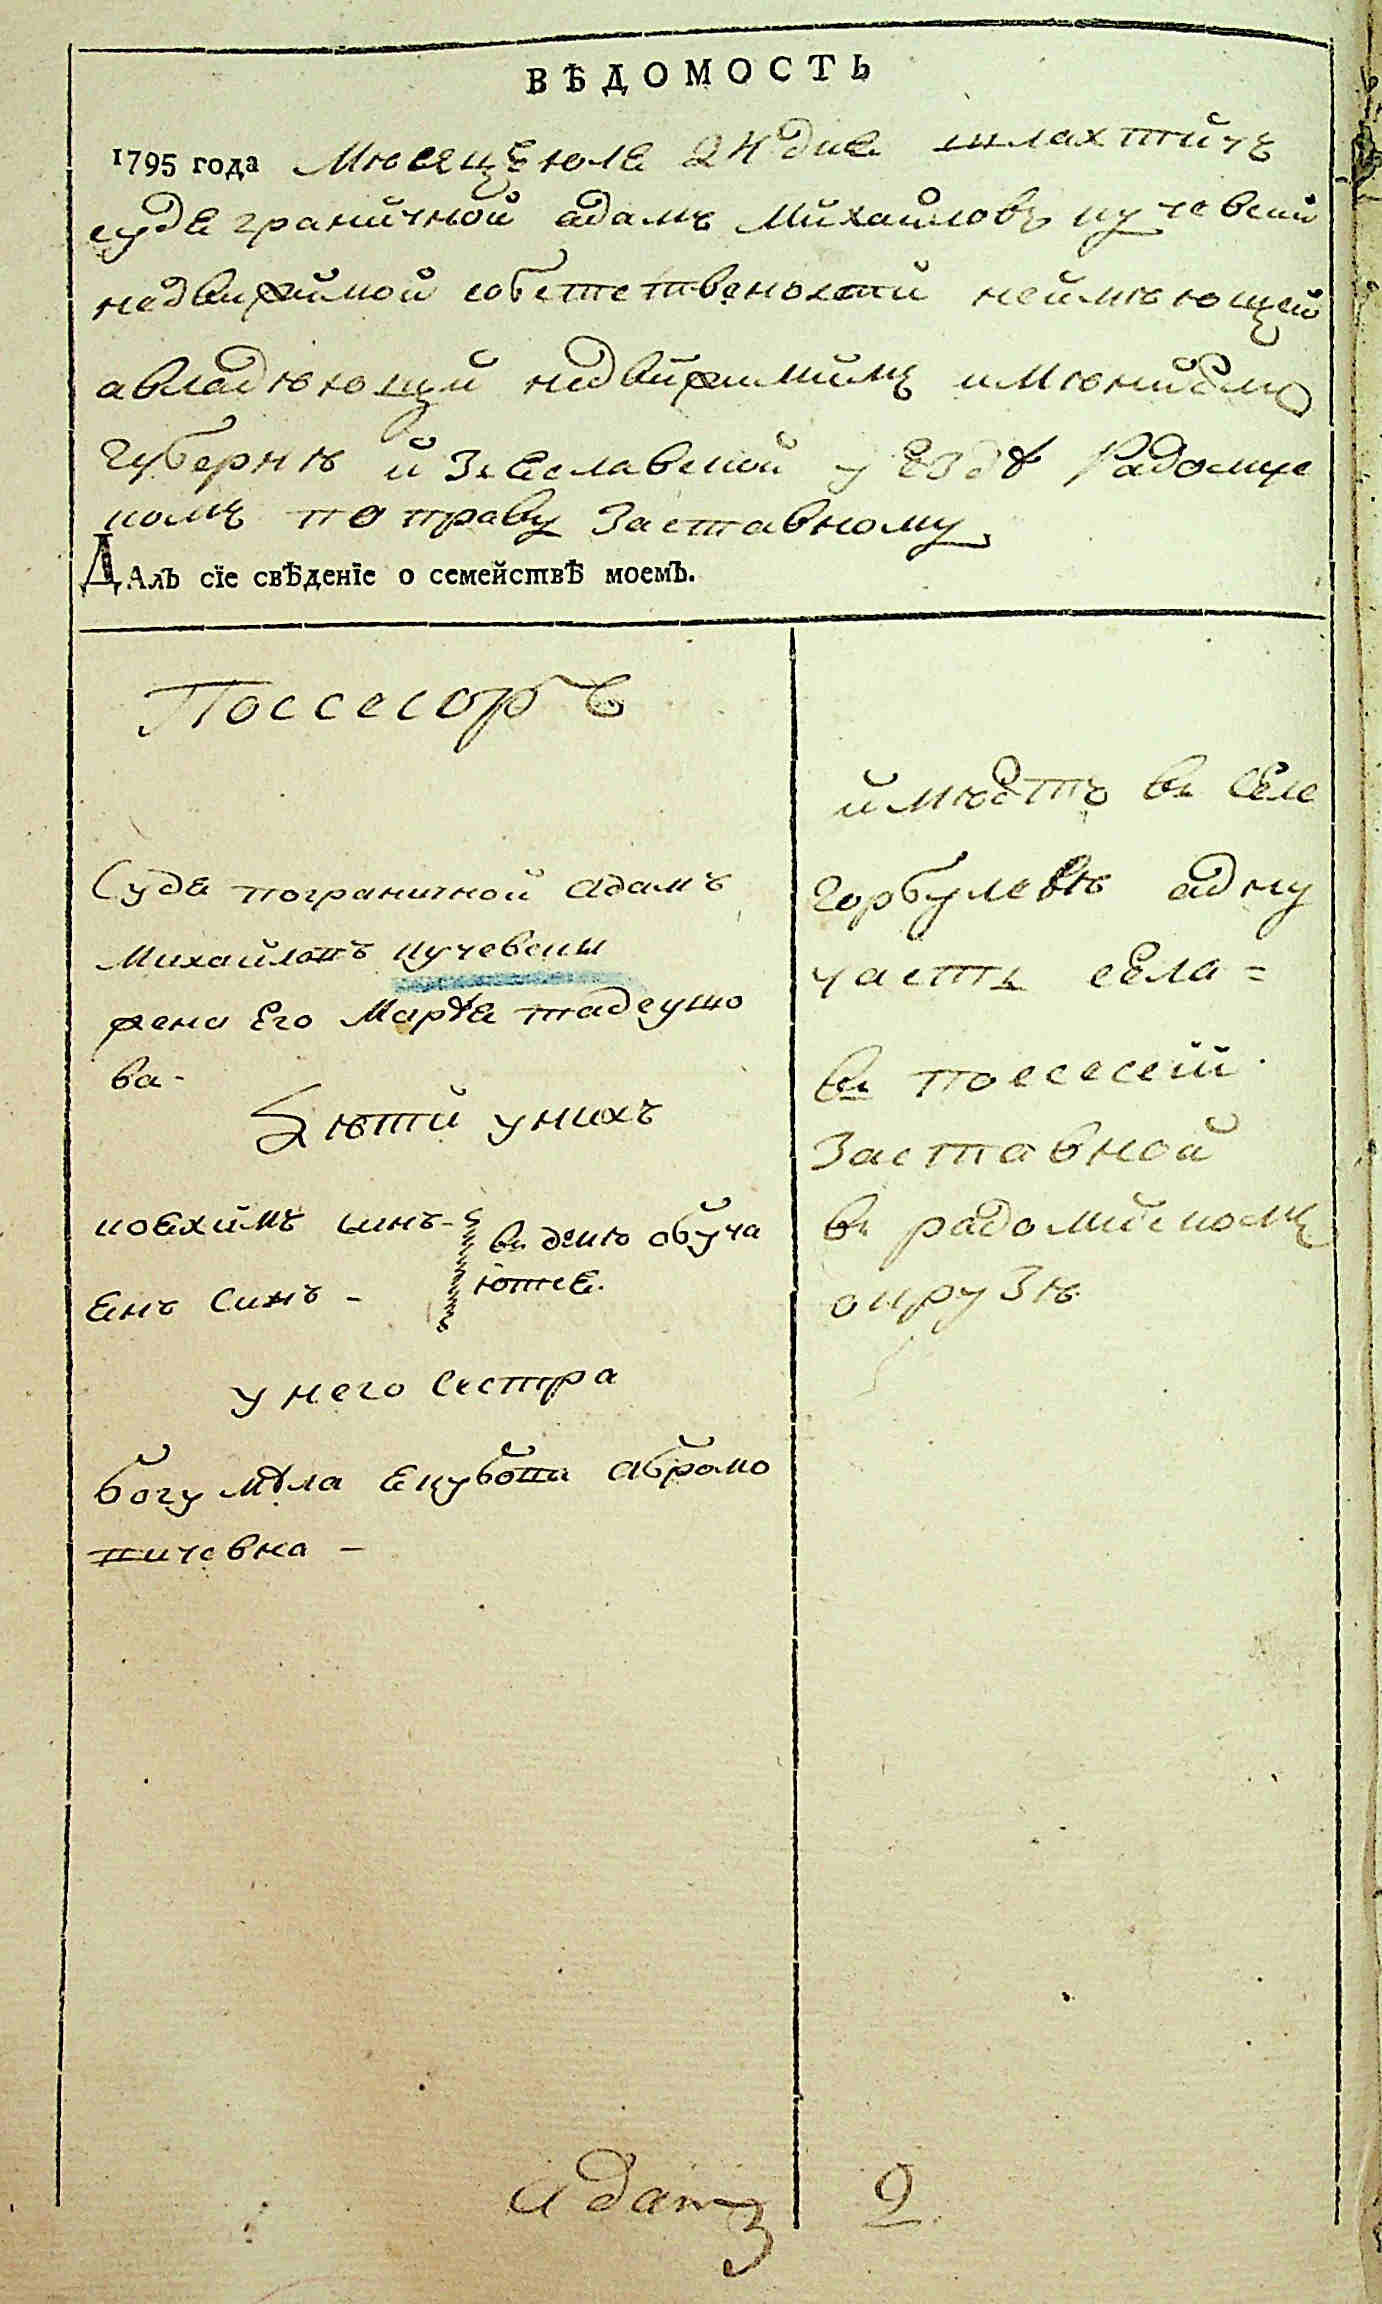 ВѢДОМОСТЬ
1795 года Мѣсяцъ юля 24 дня шляхтичъ
судя граничной адамъ Михайловъ кучевски
недвижимой собственности неимѣющей
авладѣющи недвижимимъ имѣниемъ
Губернѣ изяславской уездѣ Радомис
комъ по праву заставному
ДАлЪ сїе свѢденїе о семействѢ моемЪ.
Поссесоръ
Судя пограничной адамъ
Михайловъ кучевски
жена Его Марья тадеушо
ва-
Дѣти унихъ
иоахимъ синъ-
янъ синъ -
в домѣ обуча
ются.
у него сестра
богумила якубова абрамо
вичевна -
имѣетъ в селе
Горбулевѣ адну
часть села =
в поссесеии
Заставной
в радомискомъ
окрузѣ
адамъ 2.